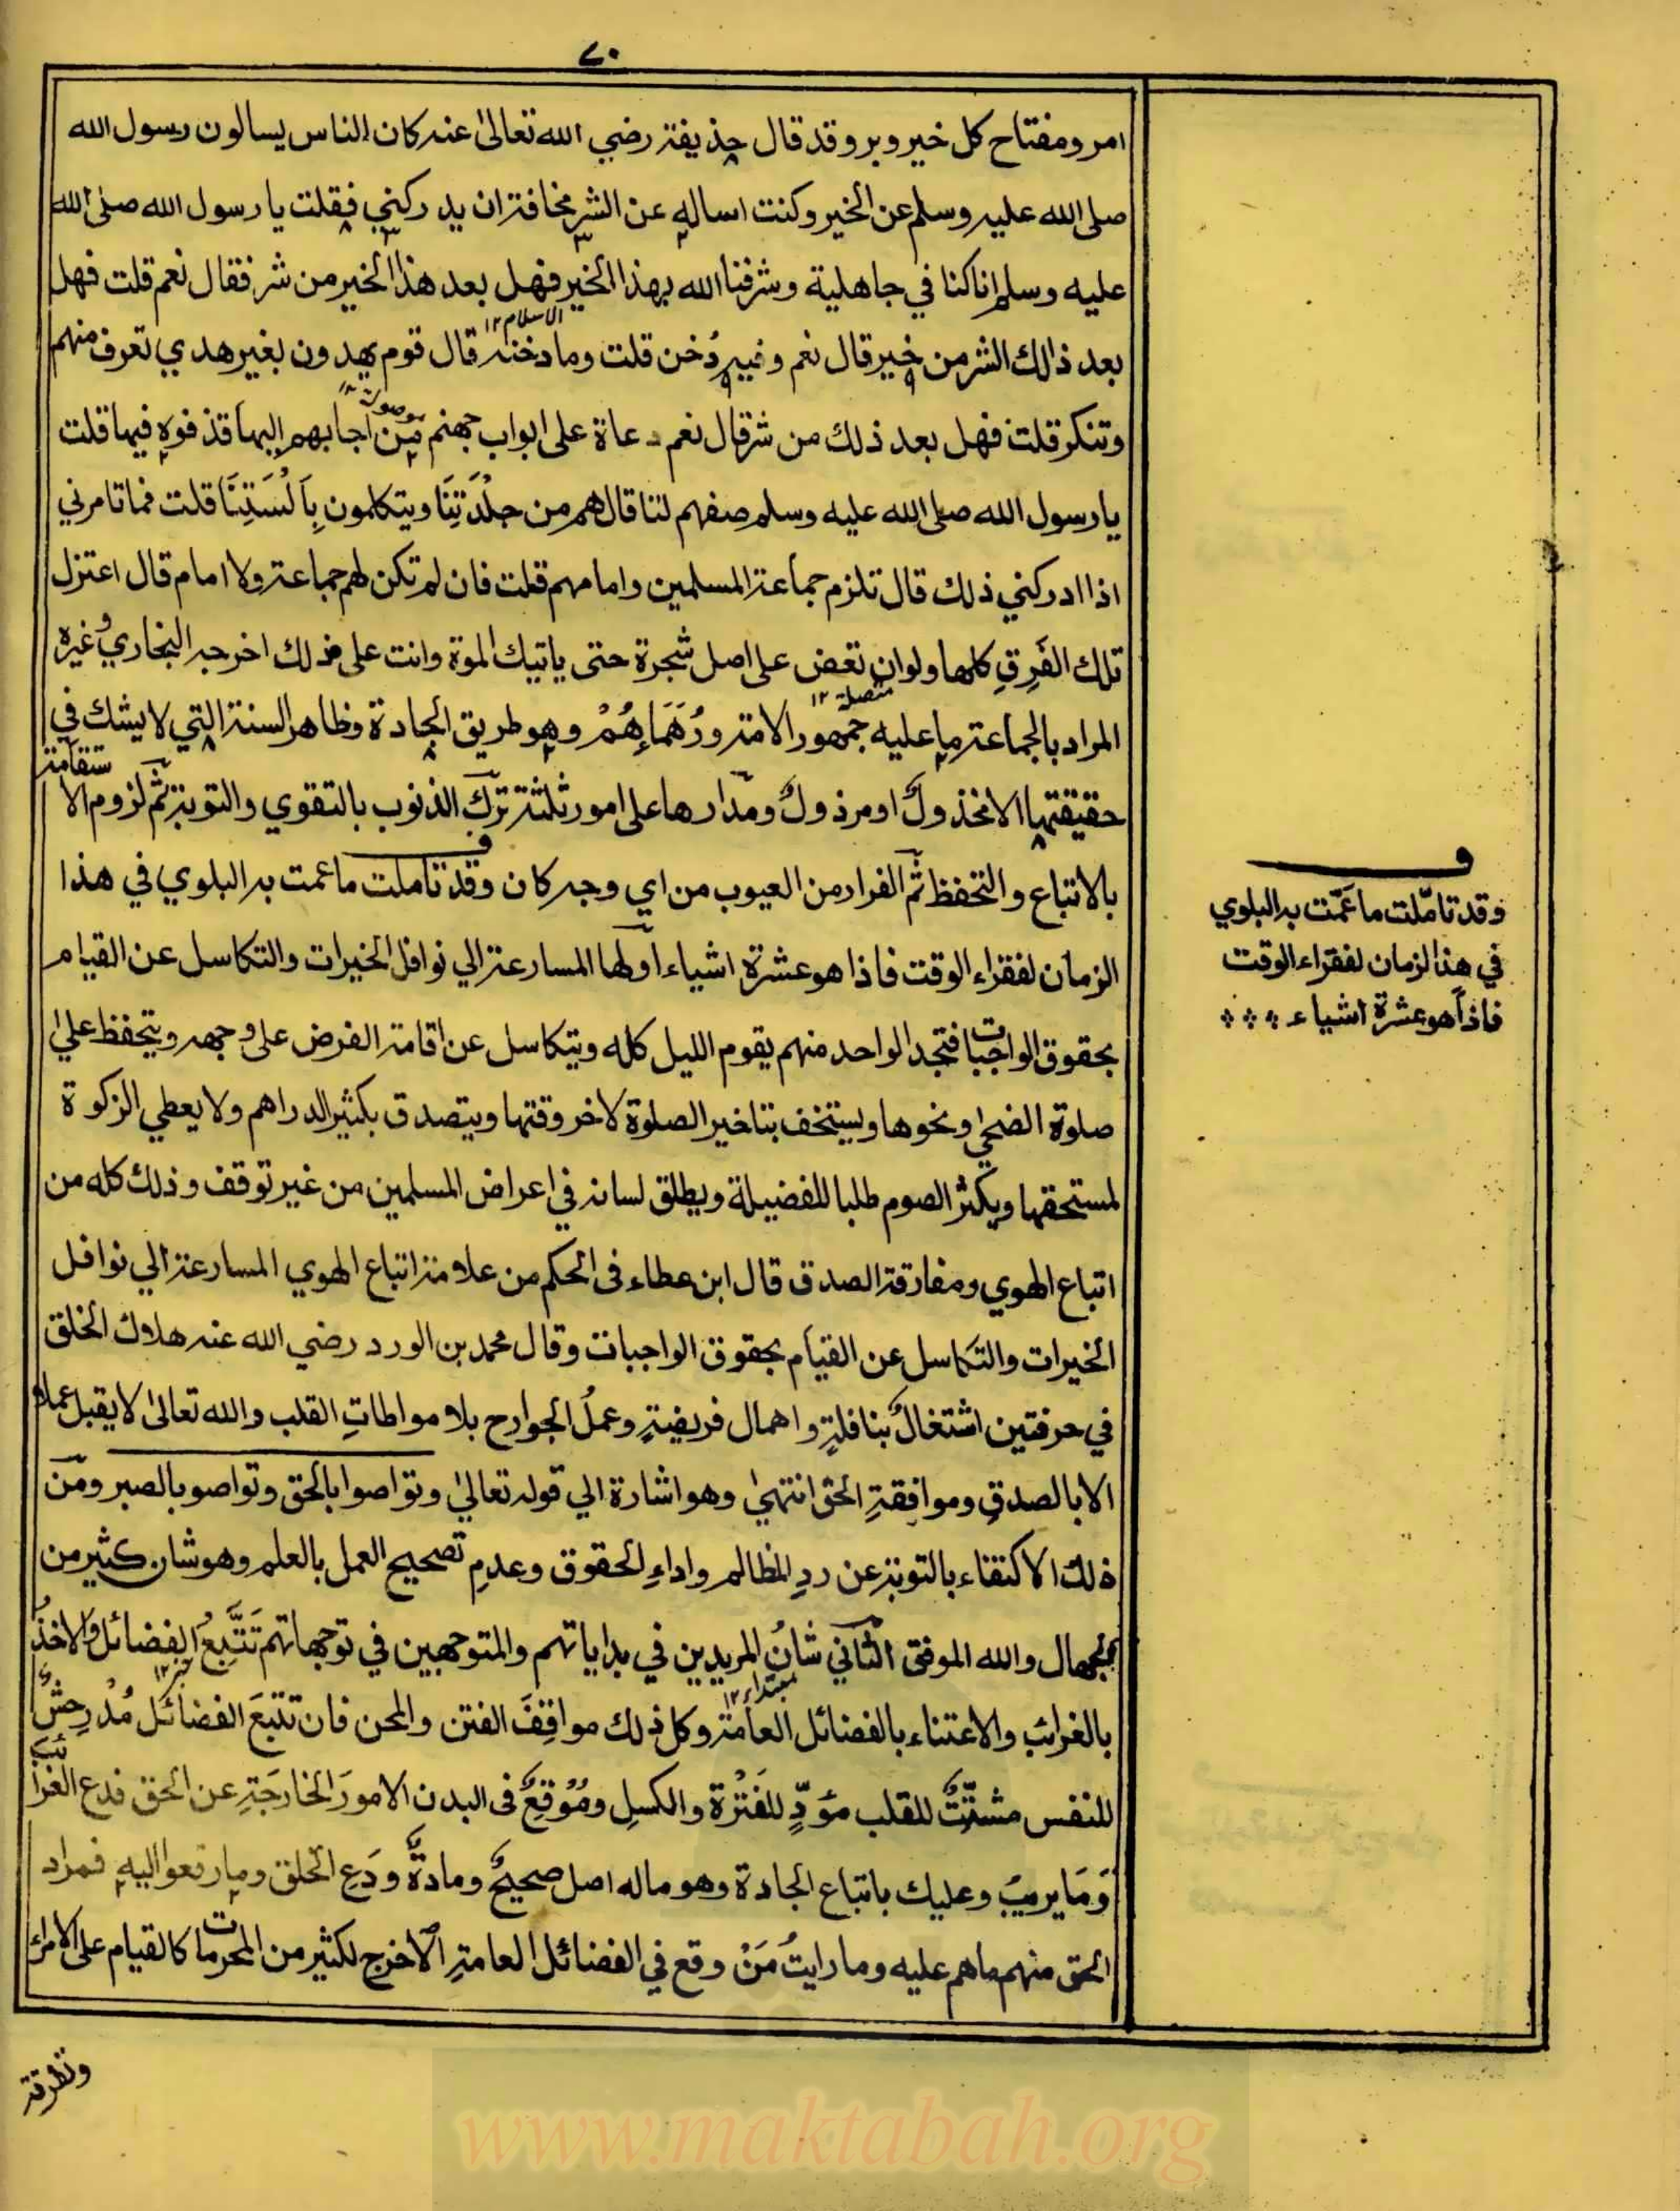 ٧٠
امر ومفتاح كل خير وبر وقد قال حذيفة رضي الله تعالىٰ عنه كان الناس يسالون رسول الله
صلى الله عليه وسلم عن الخير وكنت اساله عن الشر مخافة ان يدركني فقلت يا رسول الله صلى الله
عليه وسلم انا كنا في جاهلية وشرفنا الله بهذا الخير فهل بعد هذا الخير من شر فقال نعم قلت فهل
الاسلام ١٢
بعد ذالك الشر من خير قال نعم وفيه دُخن قلت وما دخنه قال قوم يهدون بغير هدي تعرف منهم
موصولة
وتنكر قلت فهل بعد ذلك من شر قال نعم دعاة على ابواب جهنم مَن اجابهم اليها قذفوه فيها قلت
يا رسول الله صلى الله عليه وسلم صفهم لنا قال هم من جِلْدَتِنَا ويتكلمون بِاَلْسَنِتِنَا قلت فما تامرني
اذا ادركني ذلك قال تلزم جماعة المسلمين وامامهم قلت فان لم تكن لهم جماعة ولا امام قال اعتزل
تلك الفَرِقِ كلها ولو ان تعض على اصل شجرة حتى ياتيك الموة وانت على ذلك اخرجه البخاري وغيره
متصلة ١٢
المراد بالجماعة ما عليه جمهور الامة ورُهَمَاءِهُمْ وهو طريق الجادة وظاهر السنة التي لا يشك في
حقيقتها الا مخذولٌ او مرذولٌ ومدارها على امور ثلثة ترك الذنوب بالتقوي والتوبة ثم لزوم الا ستقامة
بالاتباع والتحفظ ثم الفرار من العيوب من اي وجه كان وقد تاملت ما عمت به البلوي في هذا
الزمان لفقراء الوقت فاذا هو عشرة اشياء اولها المسارعة الي نوافل الخيرات والتكاسل عن القيام
بحقوق الواجبات فتجد الواحد منهم يقوم الليل كله ويتكاسل عن اقامة الفرض على وجهه ويتحفظ علىٰ
صلوة الضحي ونحوها ويستخف بتاخير الصلوة لاخر وقتها ويتصدق بكثير الدراهم ولا يعطي الزكوة
لمستحقها ويكثر الصوم طلبا للفضيلة ويطلق لسانه في اعراض المسلمين من غير توقف وذلك كله من
اتباع الهوي ومفارقة الصدق قال ابن عطاء فى الحكم من علامة اتباع الهوي المسارعة الي نوافل
الخيرات والتكاسل عن القيام بحقوق الواجبات وقال محمد بن الورد رضي الله عنه هلاك الخلق
في حرفتين اشتغالٌ بنافلةٍ و اهمال فريضةٍ وعملُ الجوارح بلا مواطاتِ القلب والله تعالىٰ لا يقبل عملا
الا بالصدقِ وموافقةِ الحق انتهىٰ وهو اشارة الي قوله تعالىٰ وتواصوا بالحق وتواصو بالصبر ومن
ذلك الاكتفاء بالتوبة عن ردِ المظالم واداءِ الحقوق وعدمِ تصحيح العمل بالعلم وهو شان كثير من
الجهال والله الموفق الثاني شانُ المريدين في بداياتهم والمتوجهين في توجهاتهم تَتَّبِعُ الفضائل والاخذُ
مبتداء ١٢
خبر ١٢
بالغرائب والاعتناء بالفضائل العامة وكل ذلك مواقِفَ الفتن والمحن فان تتبعَ الفضائل مُدْرِحشٌ
للنفس مشتِّتٌ للقلب مؤدٍّ للفَتْرة والكسل ومُوْقِعٌ فى البدن الامورَ الخارجَةِ عن الحق فدع الغرائب
وَمَا يريبُ وعليك باتباع الجادة وهو ماله اصل صحيحٌ ومادةٌ ودَعِ الخلق وما رفعوا اليه فمراد
الحق منهم ما هم عليه وما رايتُ مَنْ وقع في الفضائل العامةِ الا خرج لكثير من المحرمات كالقيام على الامراء
وتطرقة
وقد تامّلت ما عَمّت به البلوي
في هذا الزمان لفقراء الوقت
فاذا هو عشرة اشياء
www.maktabah.org